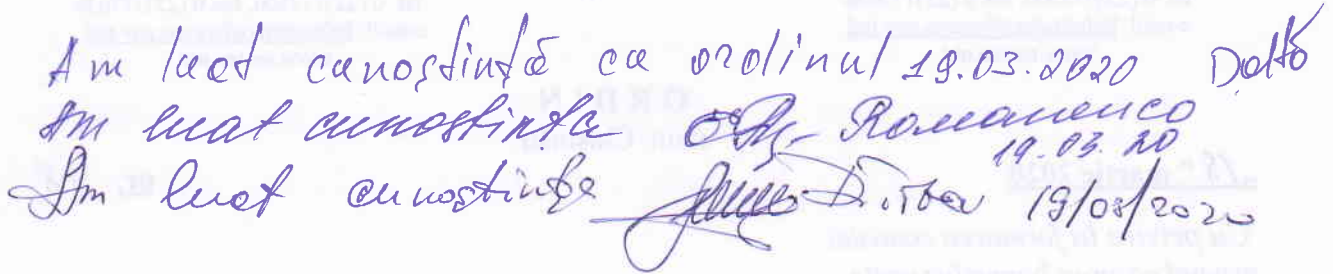 Am luat cunoștință cu ordinul 19.03.2020
Am luat cunostinta Romanenco
19.03.20
Am luat cunoștința 19/03/2020